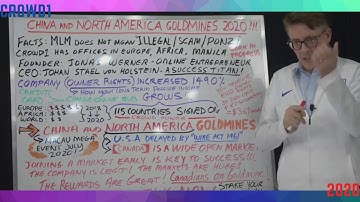 CROWD1
CHINA AND NORTH AMERICA GOLDMINES 2020!!!
FACTS: MLM DOES NOT MEAN ILLEGAL/SCAM/PONZI
CROWD1 HAS OFFICES IN EUROPE, AFRICA, MANILA
FOUNDER: JONAS WERNER - ONLINE ENTREPRENEUR
CEO: JOHAN STAEL VON HOLSTEIN - A SUCCESS TITAN!
COMPANY (OWNER RIGHTS) INCREASED 1480%
HOW YOUR LONG TERM PASSIVE INCOME
GROWS
EUROPE $$$$
AFRICA $$$
WORLD $
2018
2019
2020
115 COUNTRIES SIGNED ON
CHINA AND NORTH AMERICA GOLDMINES
MACAU MEGA
EVENT JULY
2020!
U.S.A DELAYED BY
CANADA IS A WIDE OPEN MARKET
JOINING A MARKET EARLY IS KEY TO SUCCESS!!!
THE COMPANY IS LEGIT! THE MARKETS ARE HUGE!
THE REWARDS ARE GREAT! CANADIANS ON GOLDMINE
STAKE YOUR
2020